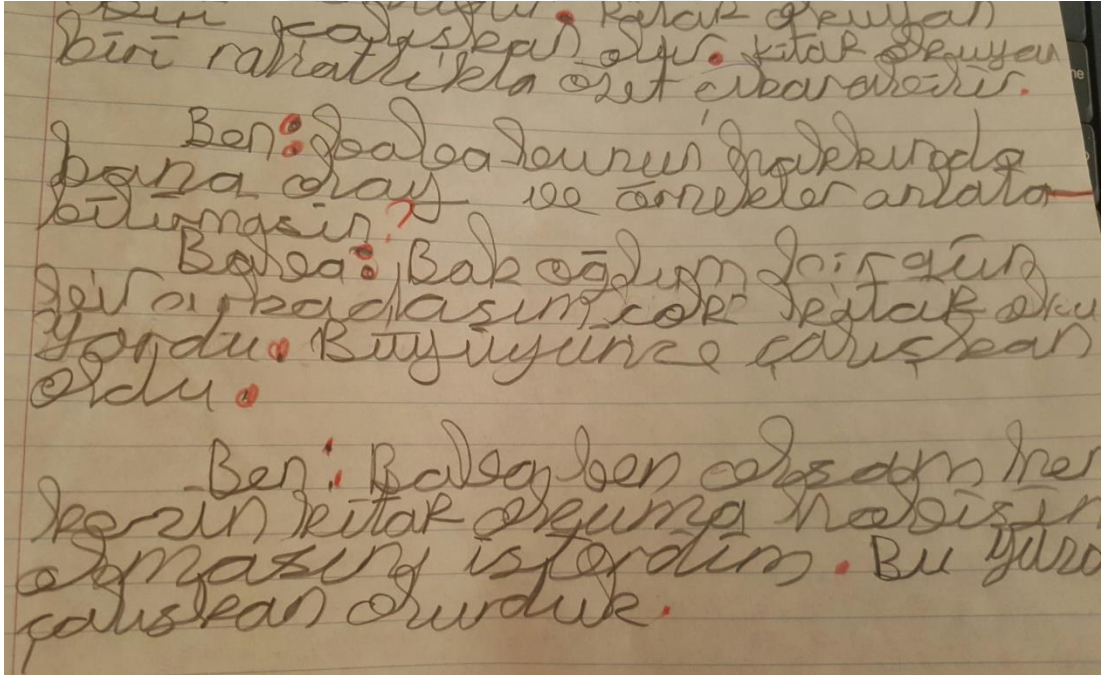 biri kitap okuyan
çalışkan olur. kitap okuyan
biri rahatlıkla özet çıkarabilir.
Ben: baba bunun hakkında
bana olay ve örnekler anlata-
bilirmisin?
Baba: Bak oğlum bir gün
bir arkadaşım çok kitap oku
yordu. Büyüyünce çalışkan
oldu.
Ben: Baba ben olsam her
kezin kitap okuma
olmasını isterdim. Bu
çalışkan olurduk.